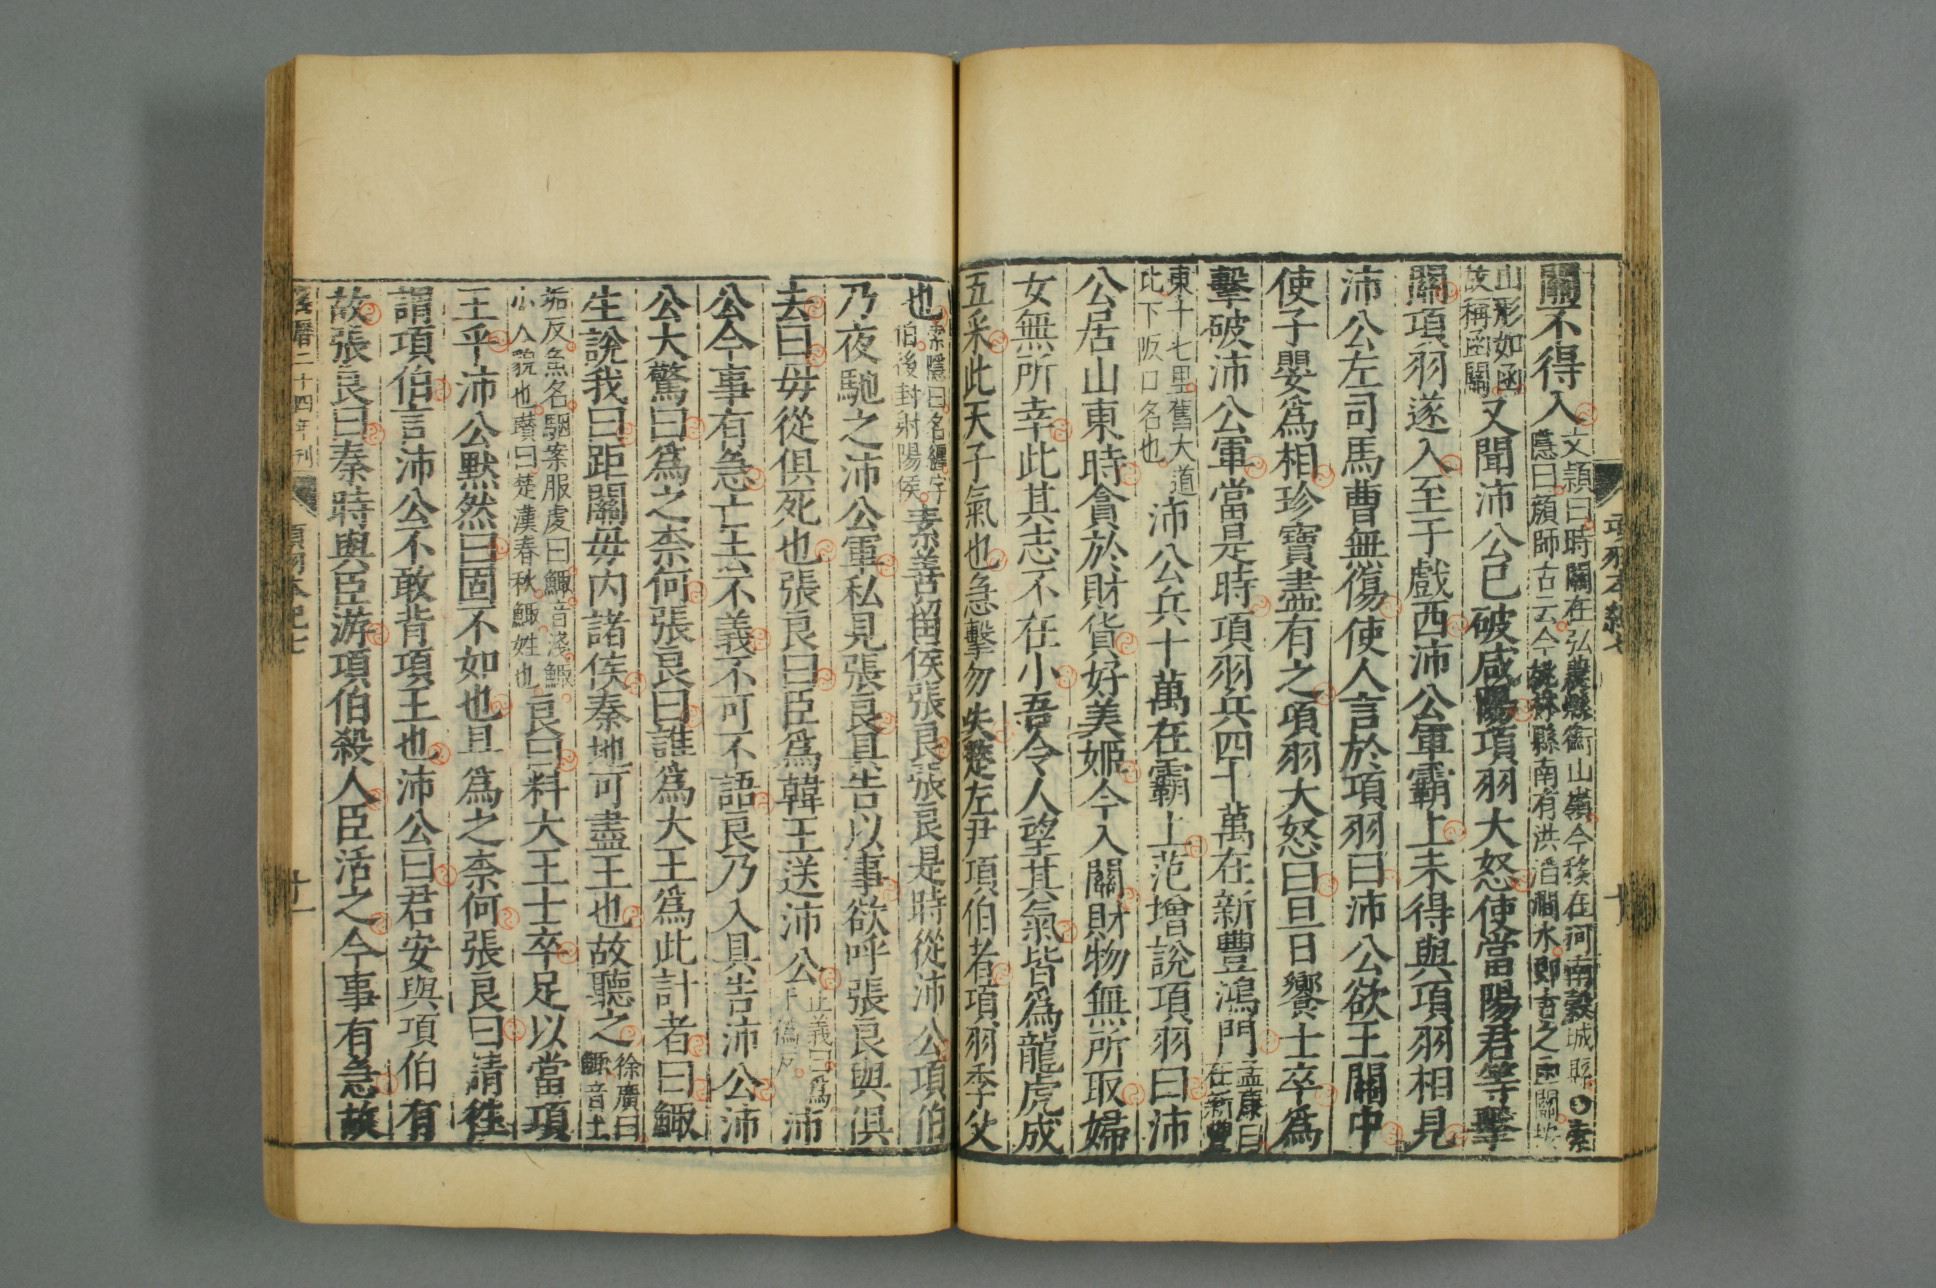 項羽本紀七
關不得入文頴曰時關在弘農縣衡山嶺今移在河南穀城縣○索
隱曰顔師古云今桃林縣南有洪溜澗水即古之函關按
山形如函
故稱函關又聞沛公已破咸陽項羽大怒使當陽君等擊
關項羽遂入至于戲西沛公軍霸上未得與項羽相見
沛公左司馬曹無傷使人言於項羽曰沛公欲王關中
使子嬰爲相珍寶盡有之項羽大怒曰旦日饗士卒爲
擊破沛公軍當是時項羽兵四十萬在新豐鴻門孟康曰
在新豐
東十七里舊大道
北下阪口名也沛公兵十萬在霸上范增說項羽曰沛
公居山東時貪於財貨好美姬今入關財物無所取婦
女無所幸此其志不在小吾令人望其氣皆爲龍虎成
五采此天子氣也急擊勿失楚左尹項伯者項羽季父
也索隱曰名纒字
伯後封射陽侯素善留侯張良張良是時從沛公項伯
乃夜馳之沛公軍私見張良具告以事欲呼張良與俱
去曰毋從俱死也張良曰臣爲韓王送沛公正義曰爲
于僞反沛
公今事有急亡去不義不可不語良乃入具告沛公沛
公大驚曰爲之柰何張良曰誰爲大王爲此計者曰鯫
生說我曰距關毋内諸侯秦地可盡王也故聽之徐廣曰
鯫音士
垢反魚名駰案服䖍曰鯫音淺鯫
小人貌也瓚曰楚漢春秋鯫姓也良曰料大王士卒足以當項
王乎沛公默然曰固不如也且爲之柰何張良曰請往
謂項伯言沛公不敢背項王也沛公曰君安與項伯有
故張良曰秦時與臣游項伯殺人臣活之今事有急故
萬曆二十四年刊
項羽本紀七
十一